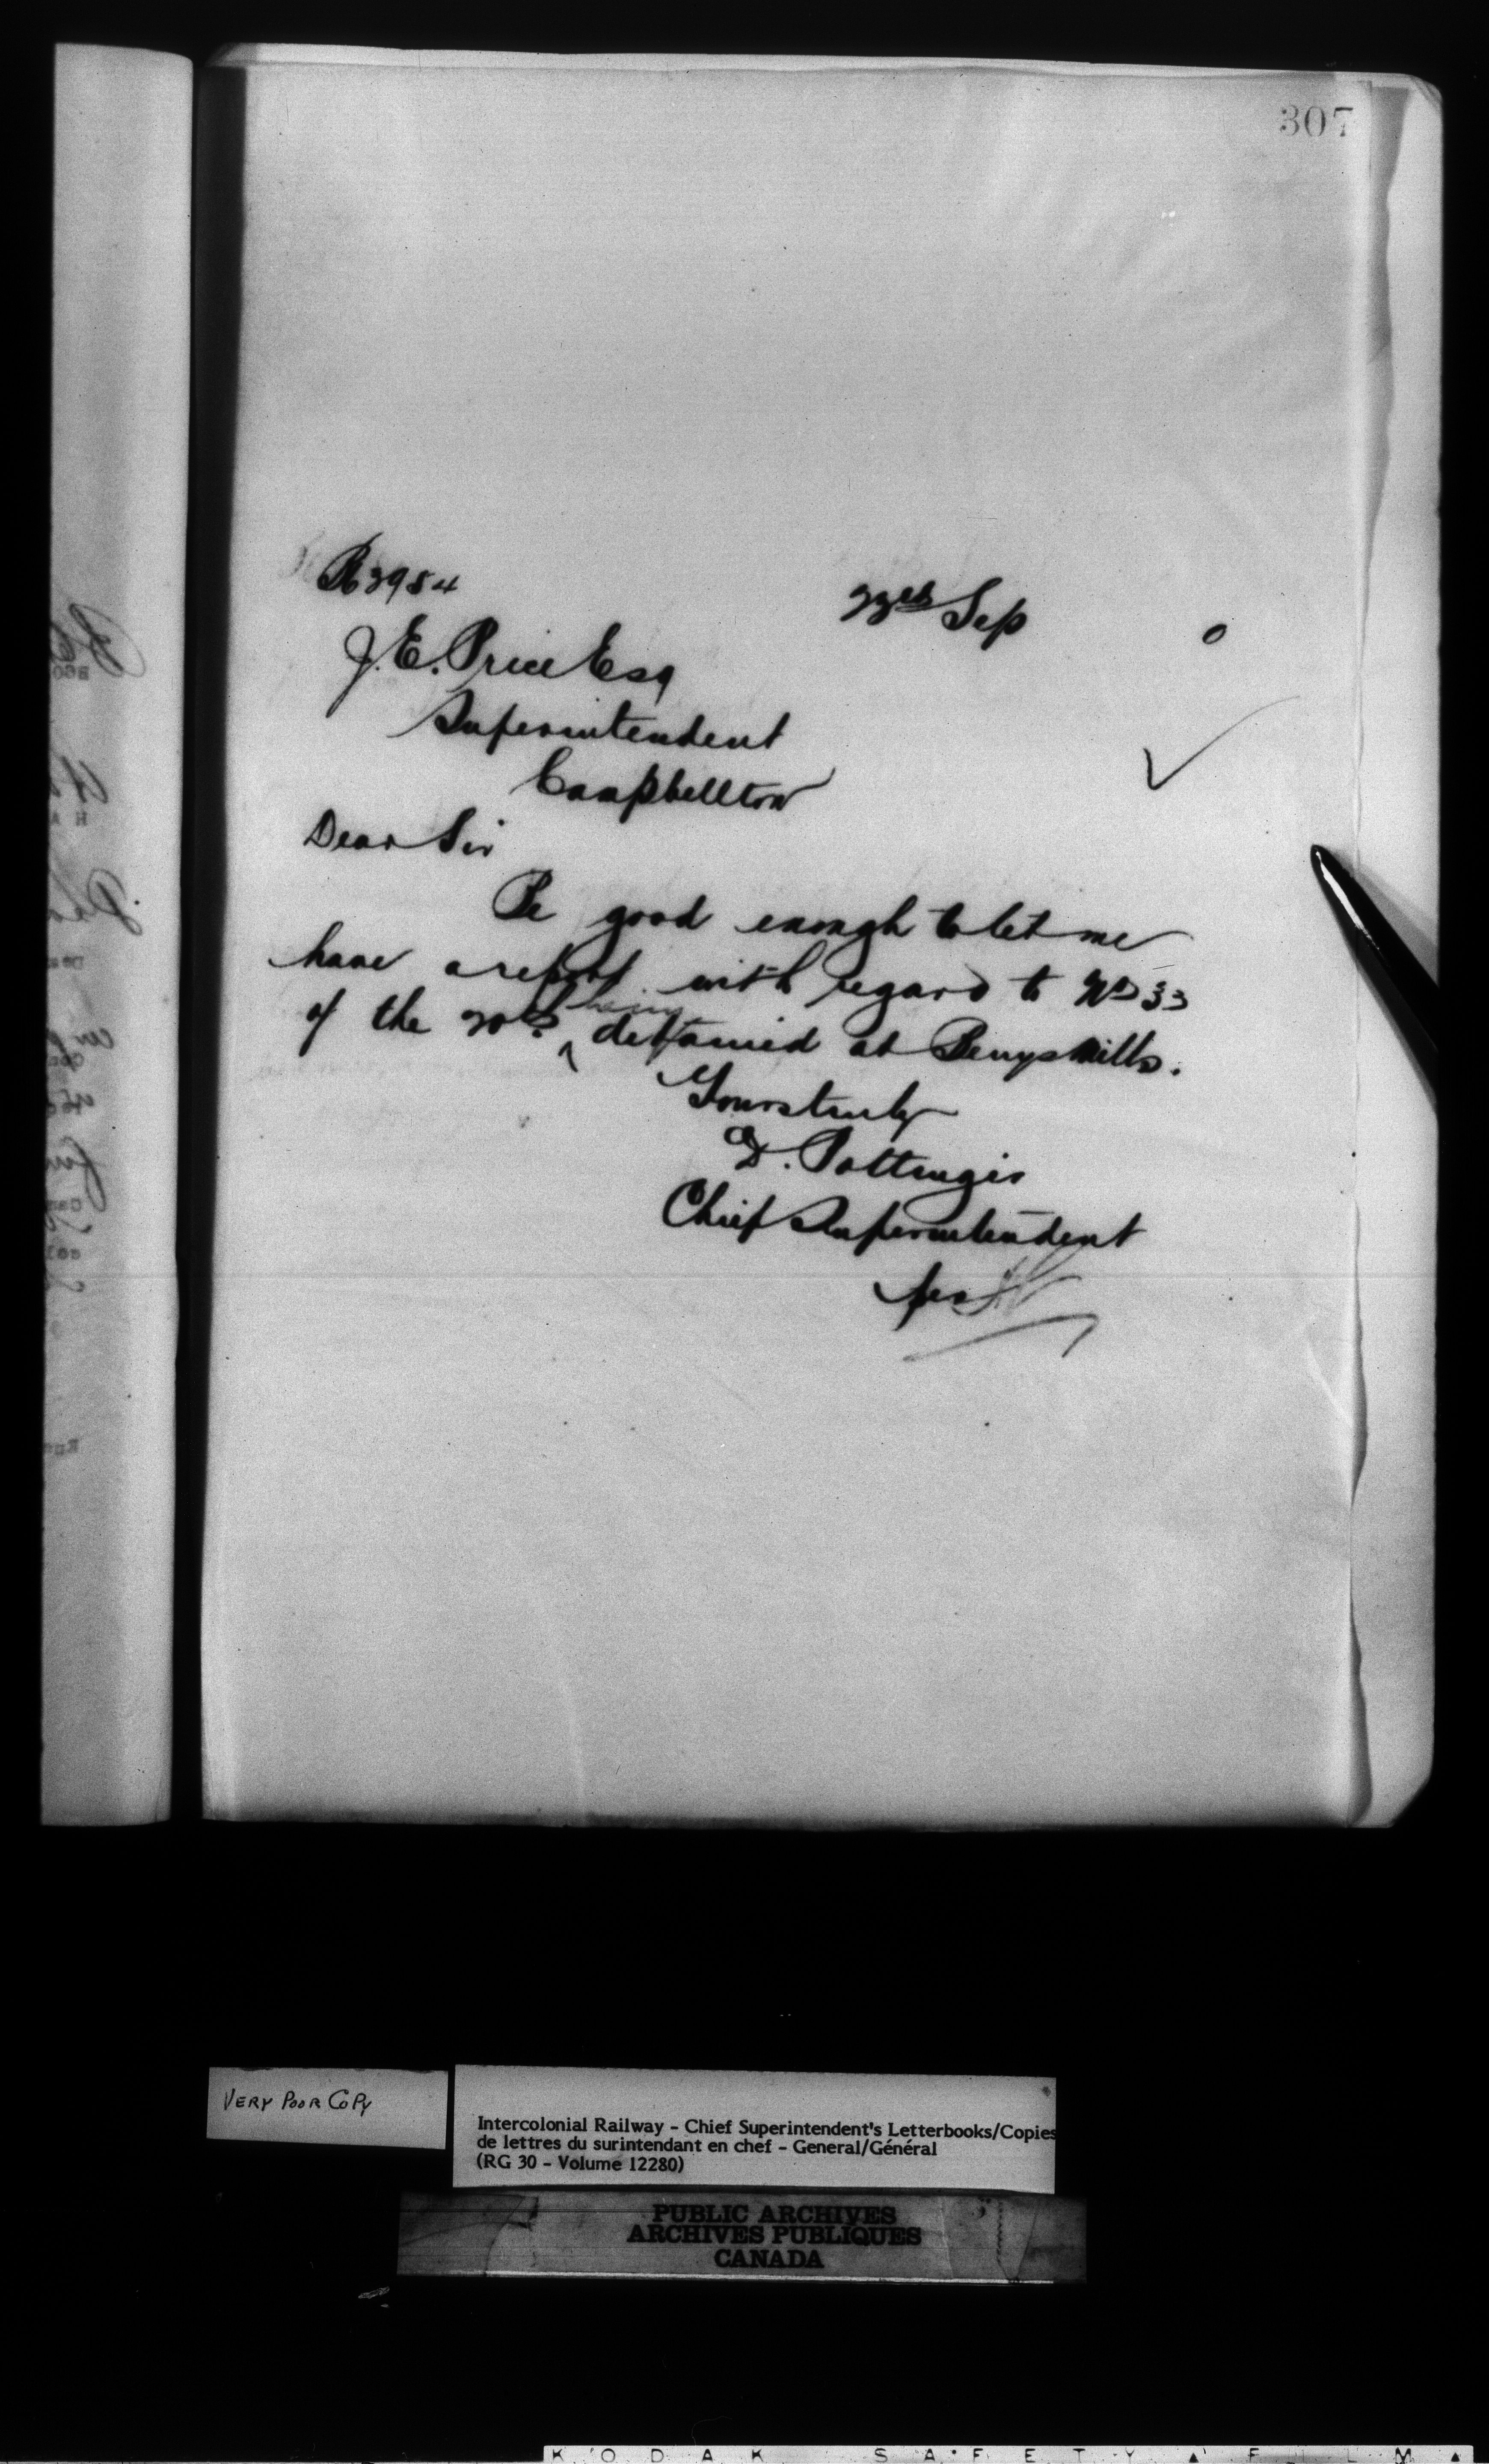 307
R 3984
23rd Sep 0
J. E. Price Esq
Superintendent
Campbellton
Dear Sir
Be good enough to let me
have a report with regard to No 33
being
of the 20th detained at Berrys Mills.
Yours truly
D. Pottinger
Chief Superintendent
per
VERY POOR COPY
Intercolonial Railway - Chief Superintendent's Letterbooks/Copies
de lettres du surintendant en chef - General/Général
(RG 30 - Volume 12280)
PUBLIC ARCHIVES
ARCHIVES PUBLIQUES
CANADA
KODAK SAFETY FILM